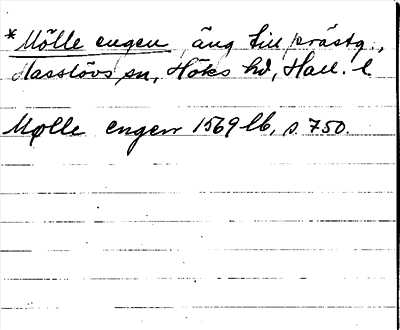 *Mölle engen, äng till prästg.,
Hasslövs sn, Höks hd, Hall. l
Mølle engen 1569 lb, s. 750.